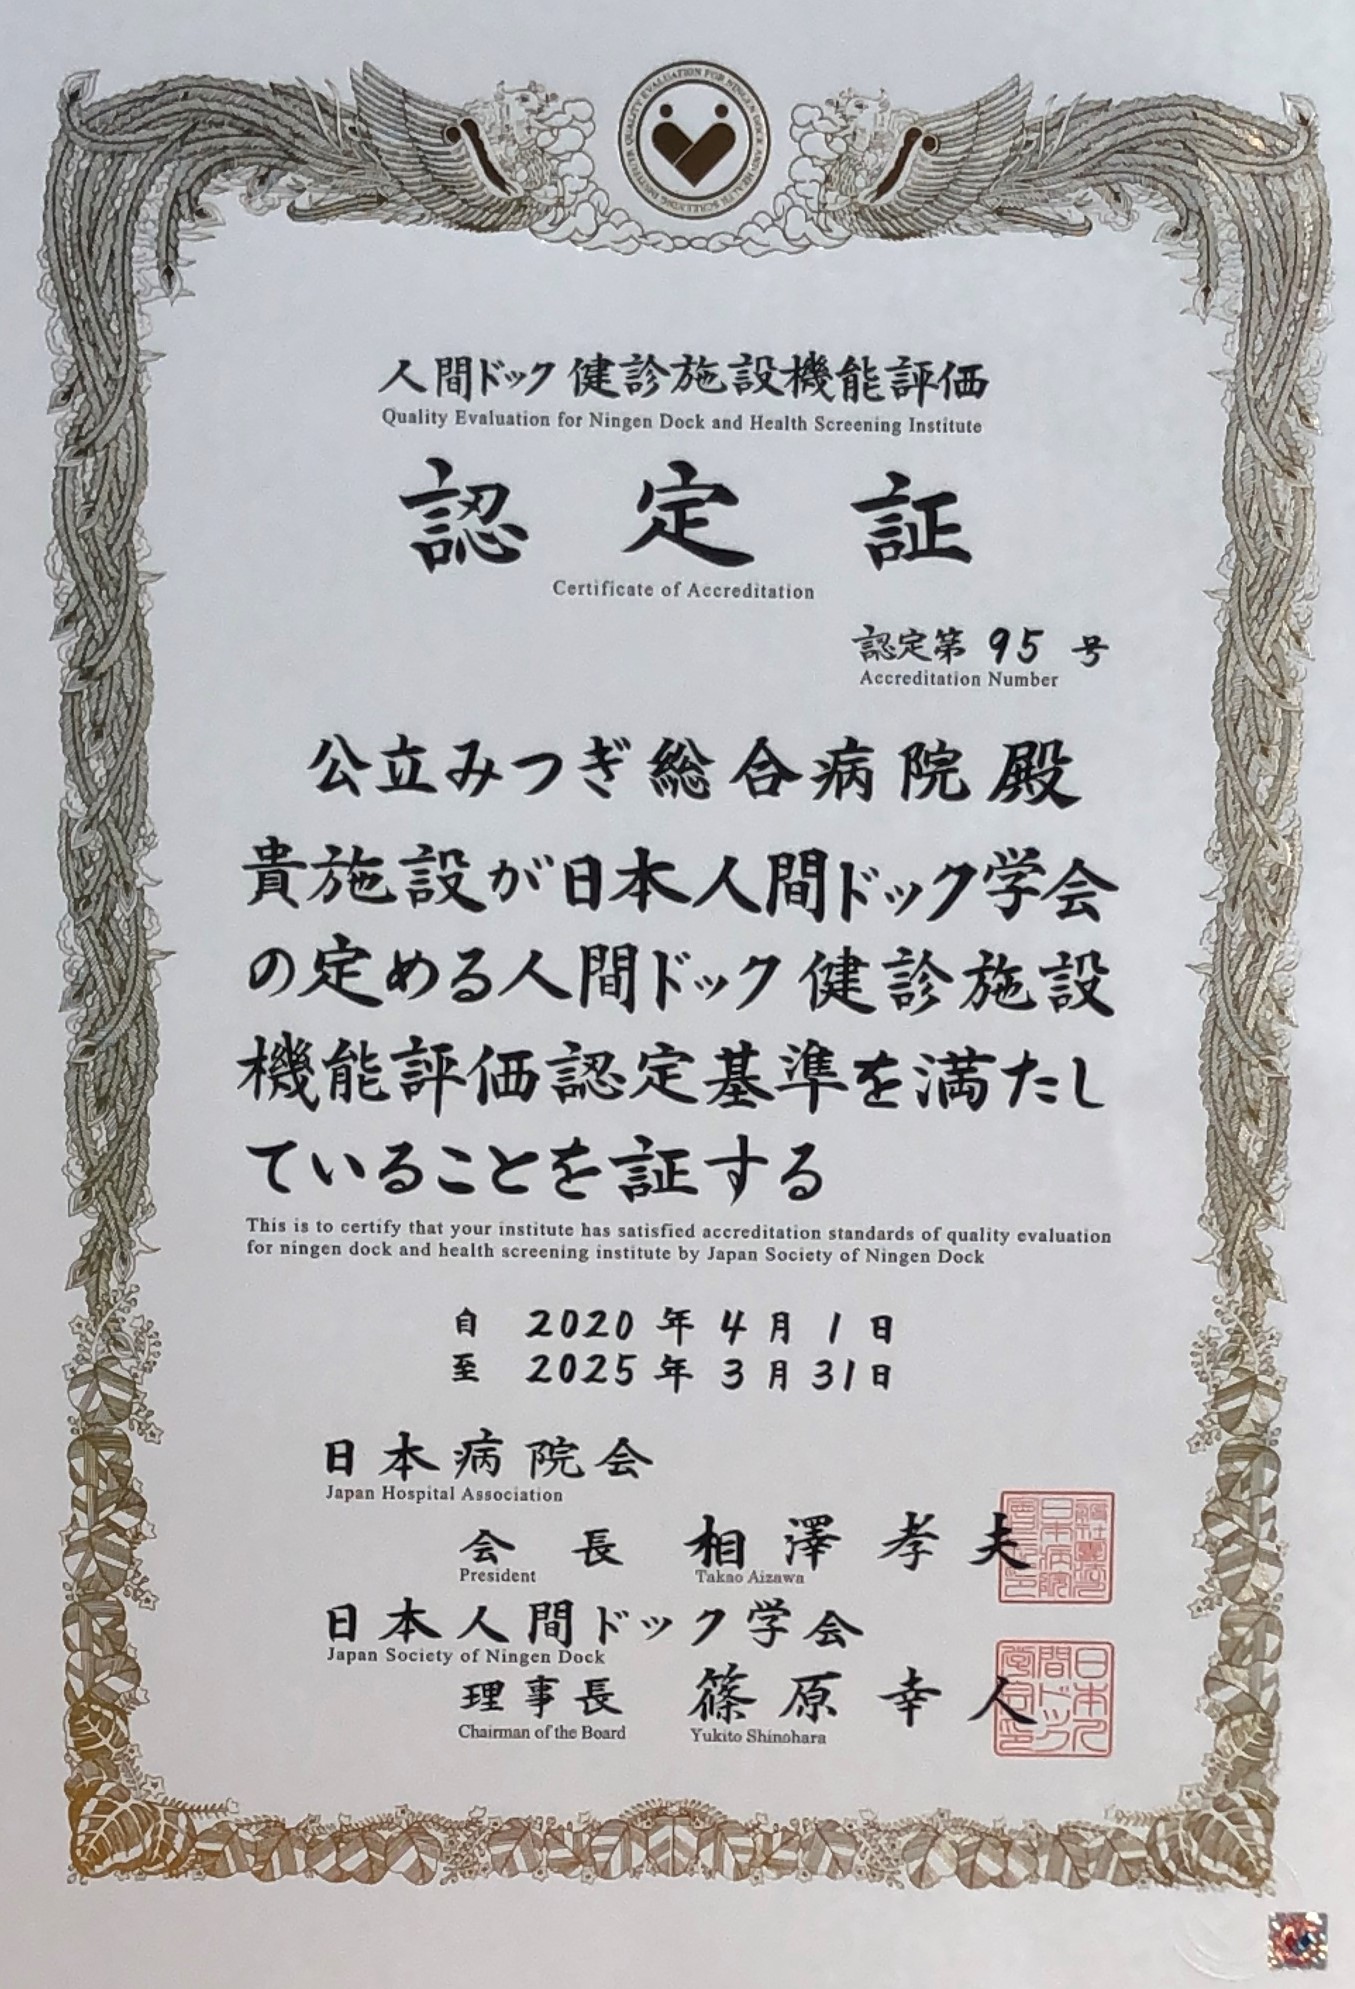 QUALITY EVALUATION FOR NINGEN DOCK AND HEALTH SCREENING INSTITUTE
人間ドック健診施設機能評価
Quality Evaluation for Ningen Dock and Health Screening Institute
認定証
Certificate of Accreditation
認定第 95 号
Accreditation Number
公立みつぎ総合病院 殿
貴施設が日本人間ドック学会
の定める人間ドック健診施設
機能評価認定基準を満たし
ていることを証する
This is to certify that your institute has satisfied accreditation standards of quality evaluation
for ningen dock and health screening institute by Japan Society of Ningen Dock
自 2020 年 4 月 1 日
至 2025 年 3 月 31 日
日本病院会
Japan Hospital Association
会長 相澤孝夫
President Takao Aizawa
日本人間ドック学会
Japan Society of Ningen Dock
理事長 篠原幸人
Chairman of the Board Yukito Shinohara